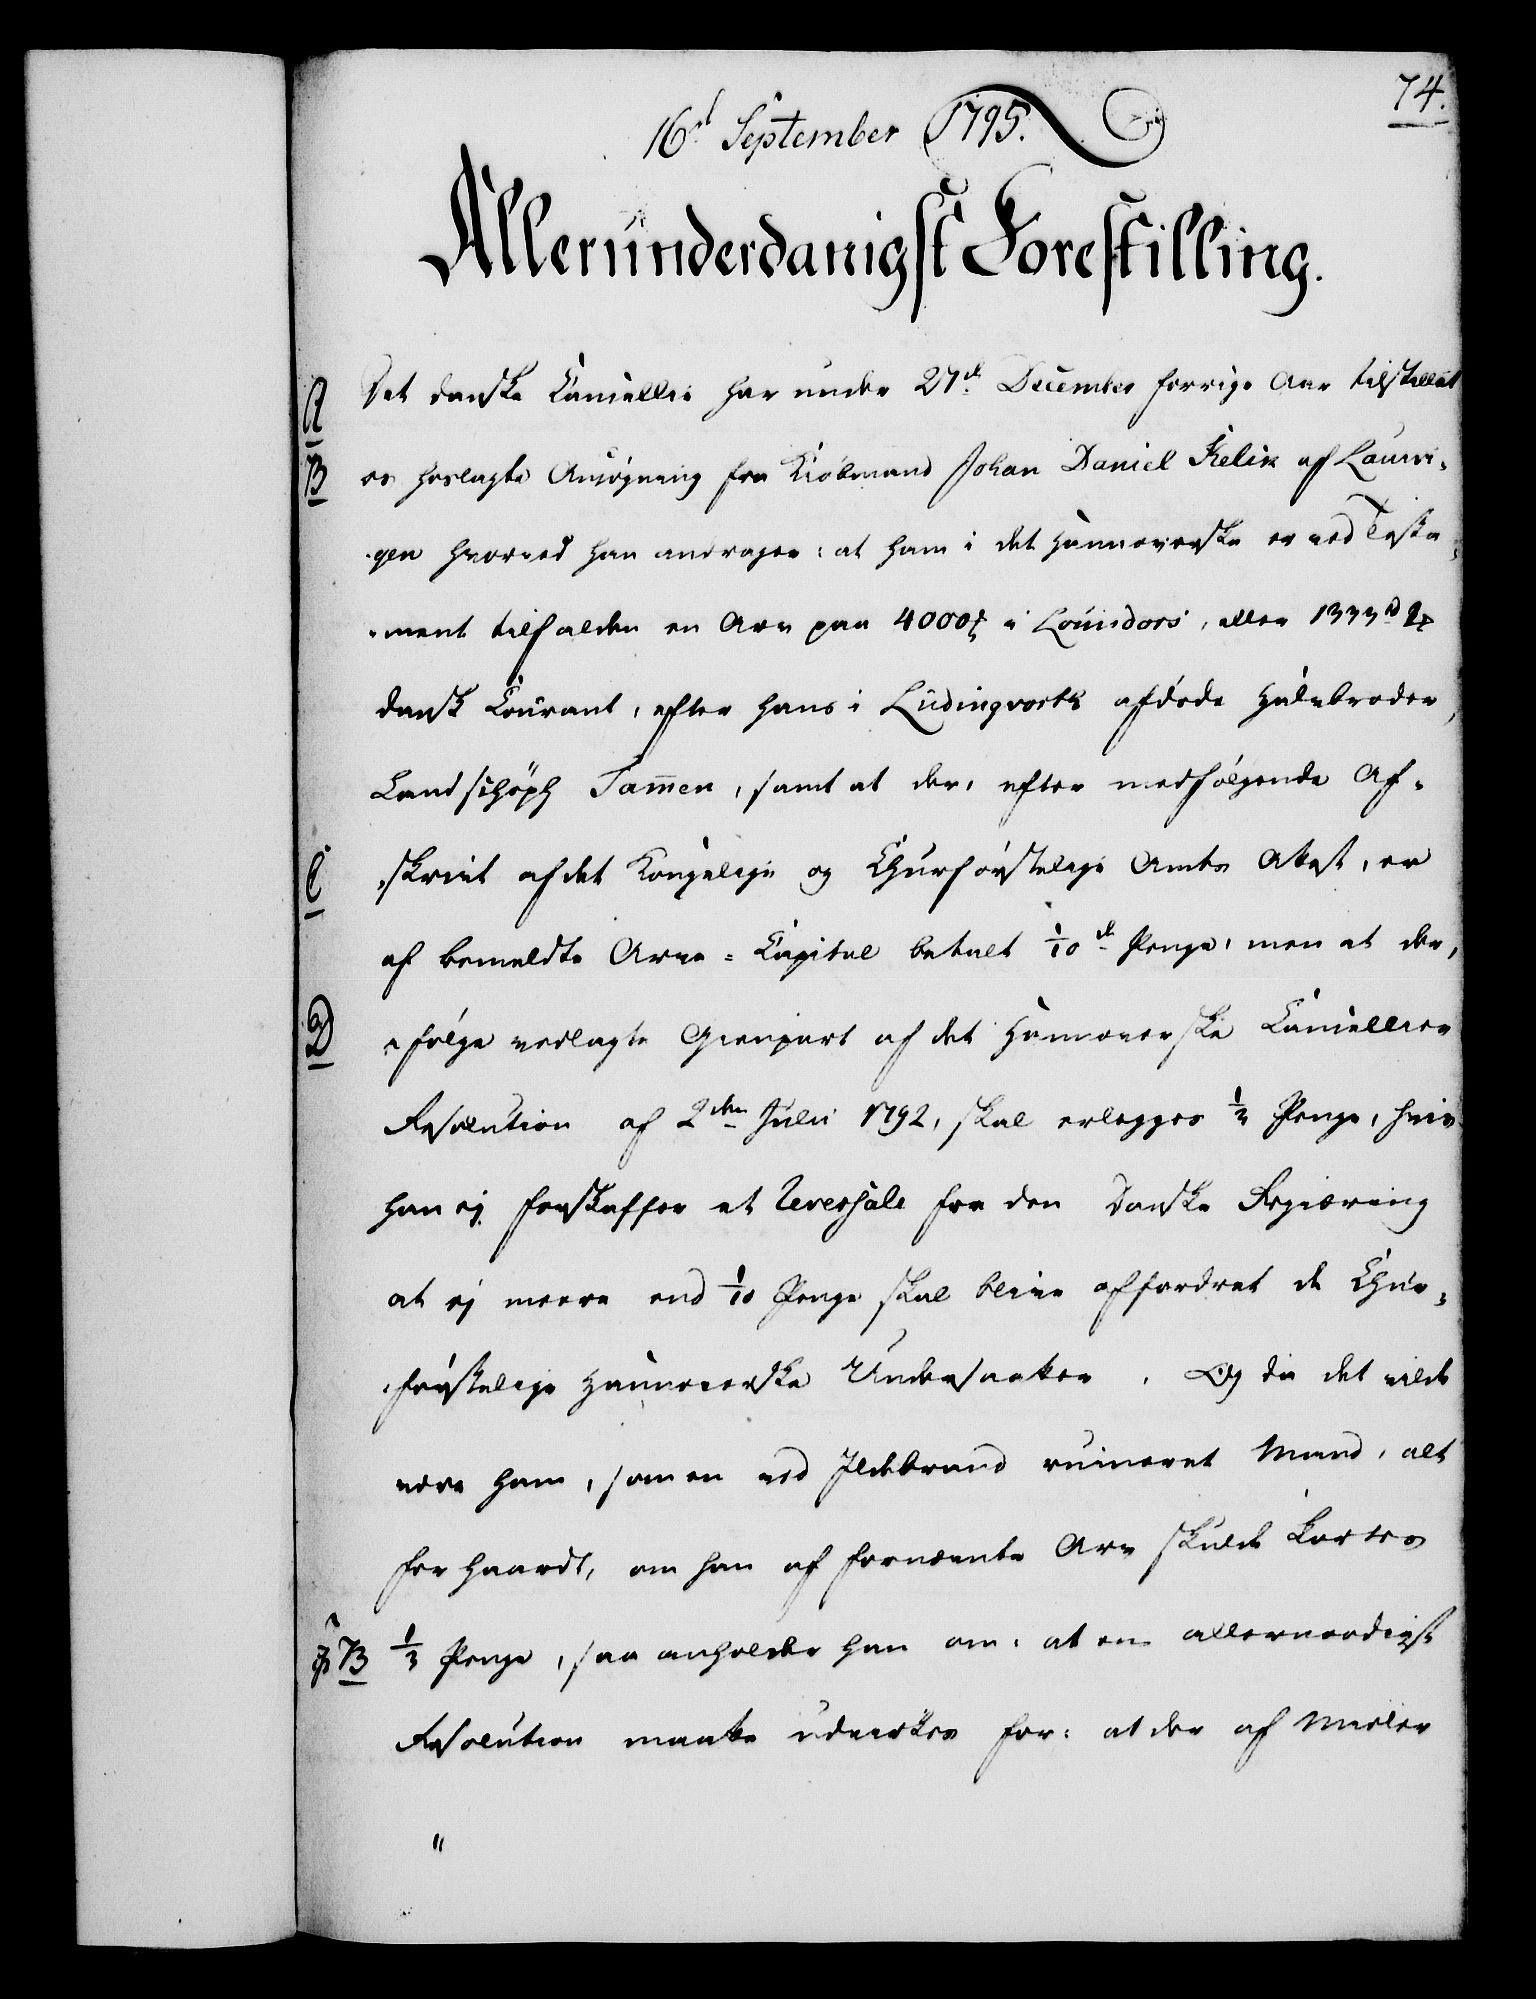 74.
16.d September 1795.
Allerunderdanigst Forestilling.
A Det danske Cancellie har under 27.d December forrige Aar tilstillet
B os hoslagte Ansøgning fra Kiøbmand Johan Daniel Felix af Laurvi-
gen hvorved han andrager: at ham i det Hannoverske er ved Testa-
ment tilfalden en Arv paa 4000 i Louisdors, eller 1333 rd
dansk Courant, efter hans i Lüdingvorth afdøde Halvbroder,
Landschöph Tam̅en, samt at der, efter medfølgende Af-
C skrivt af det Kongelige og Churførstelige Amts Attest, er
af bemeldte Arve-Capital betalt 1/10.d Penge, men at der,
D ifølge vedlagte Gienpart af det Hannoverske Cancellies
Resolution af 2den Julii 1792, skal erlegges 1/3 Penge, hvis
han ej forskaffer et Reversale fra den Danske Regiering
at ej meere end 1/10 Penge skal blive affordret de Chur-
førstelige Hannoverske Undersaatter. Og da det vilde
være ham, som en ved Ildebrand ruineret Mand, alt
for haardt, om han af fornævnte Arv skulde kortes
B 1/3 Penge, saa anholder han om: at en allernaadigst
Resolution maatte udvirkes for: at der af
"